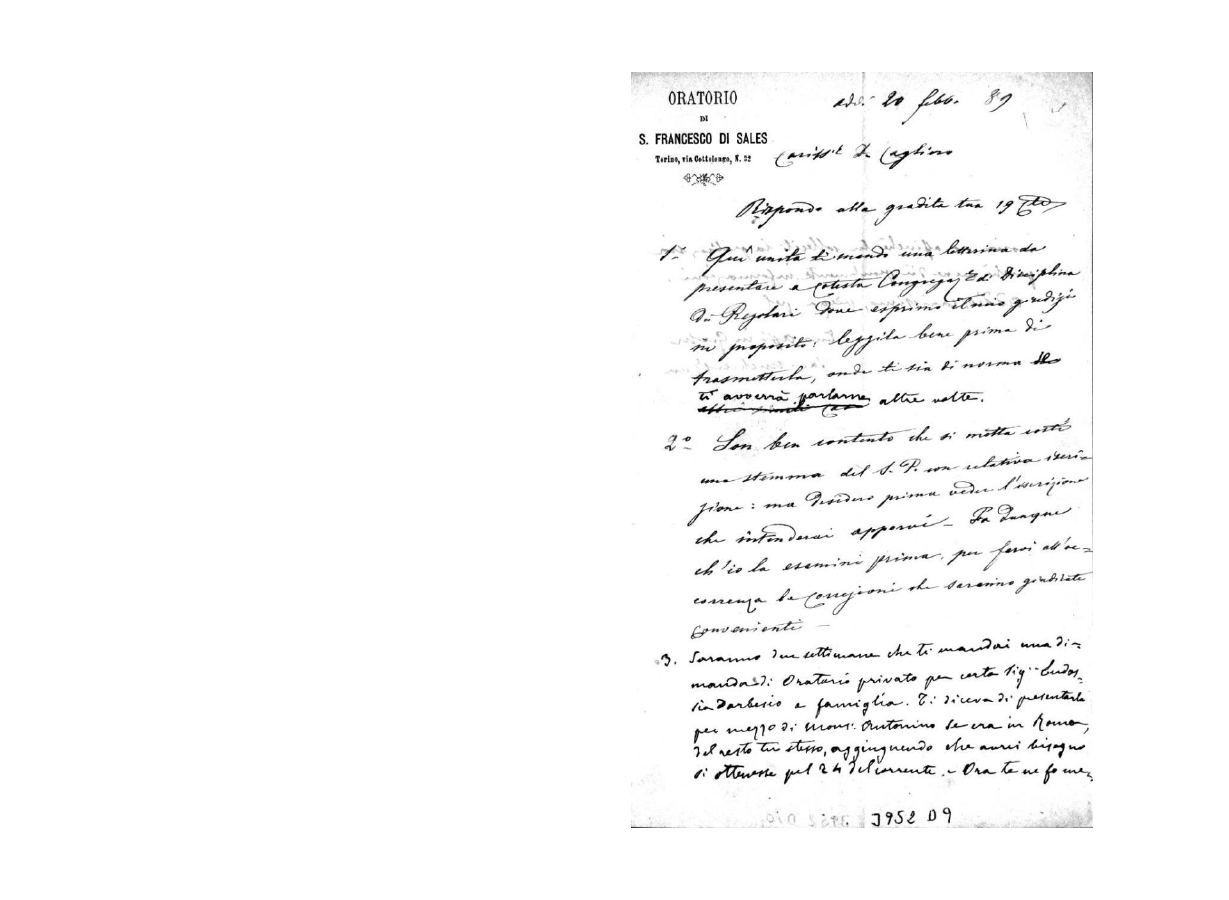 ORATORIO
DI
S. FRANCESCO DI SALES
Torino, via Cottolengo, N. 32
addì 20 febb. 89
Cariss.º D. Cagliero
Rispondo alla gradita tua 19
1º Qui unita ti mando una letterina da
presentare a cotesta Congregaz.e di Disciplina
di Regolari dove esprimo il mio giudizio
in proposito: leggila bene prima di
trasmetterla, onde ti sia di norma se
ti avverrà parlarne altre volte.
2º Son ben contento che si metta costì
uno stemma del S. P. con relativa iscri-
zione: ma desidero prima veder l'iscrizione
che intenderai apporvi - Fa dunque
ch'io la esamini prima, per farvi all'oc=
correnza le correzioni che saranno giudicate
convenienti -
3. Saranno due settimane che ti mandai una di=
manda di Oratorio privato per certa Sig.ra Eudos-
sia Barbesio e famiglia. Ti diceva di presentarla
per mezzo di Mons. Antonino se era in Roma,
del resto tu stesso, aggiungendo che avrei bisogno
si ottenesse pel 24 del corrente. - Ora te ne fo me=
3952 D9